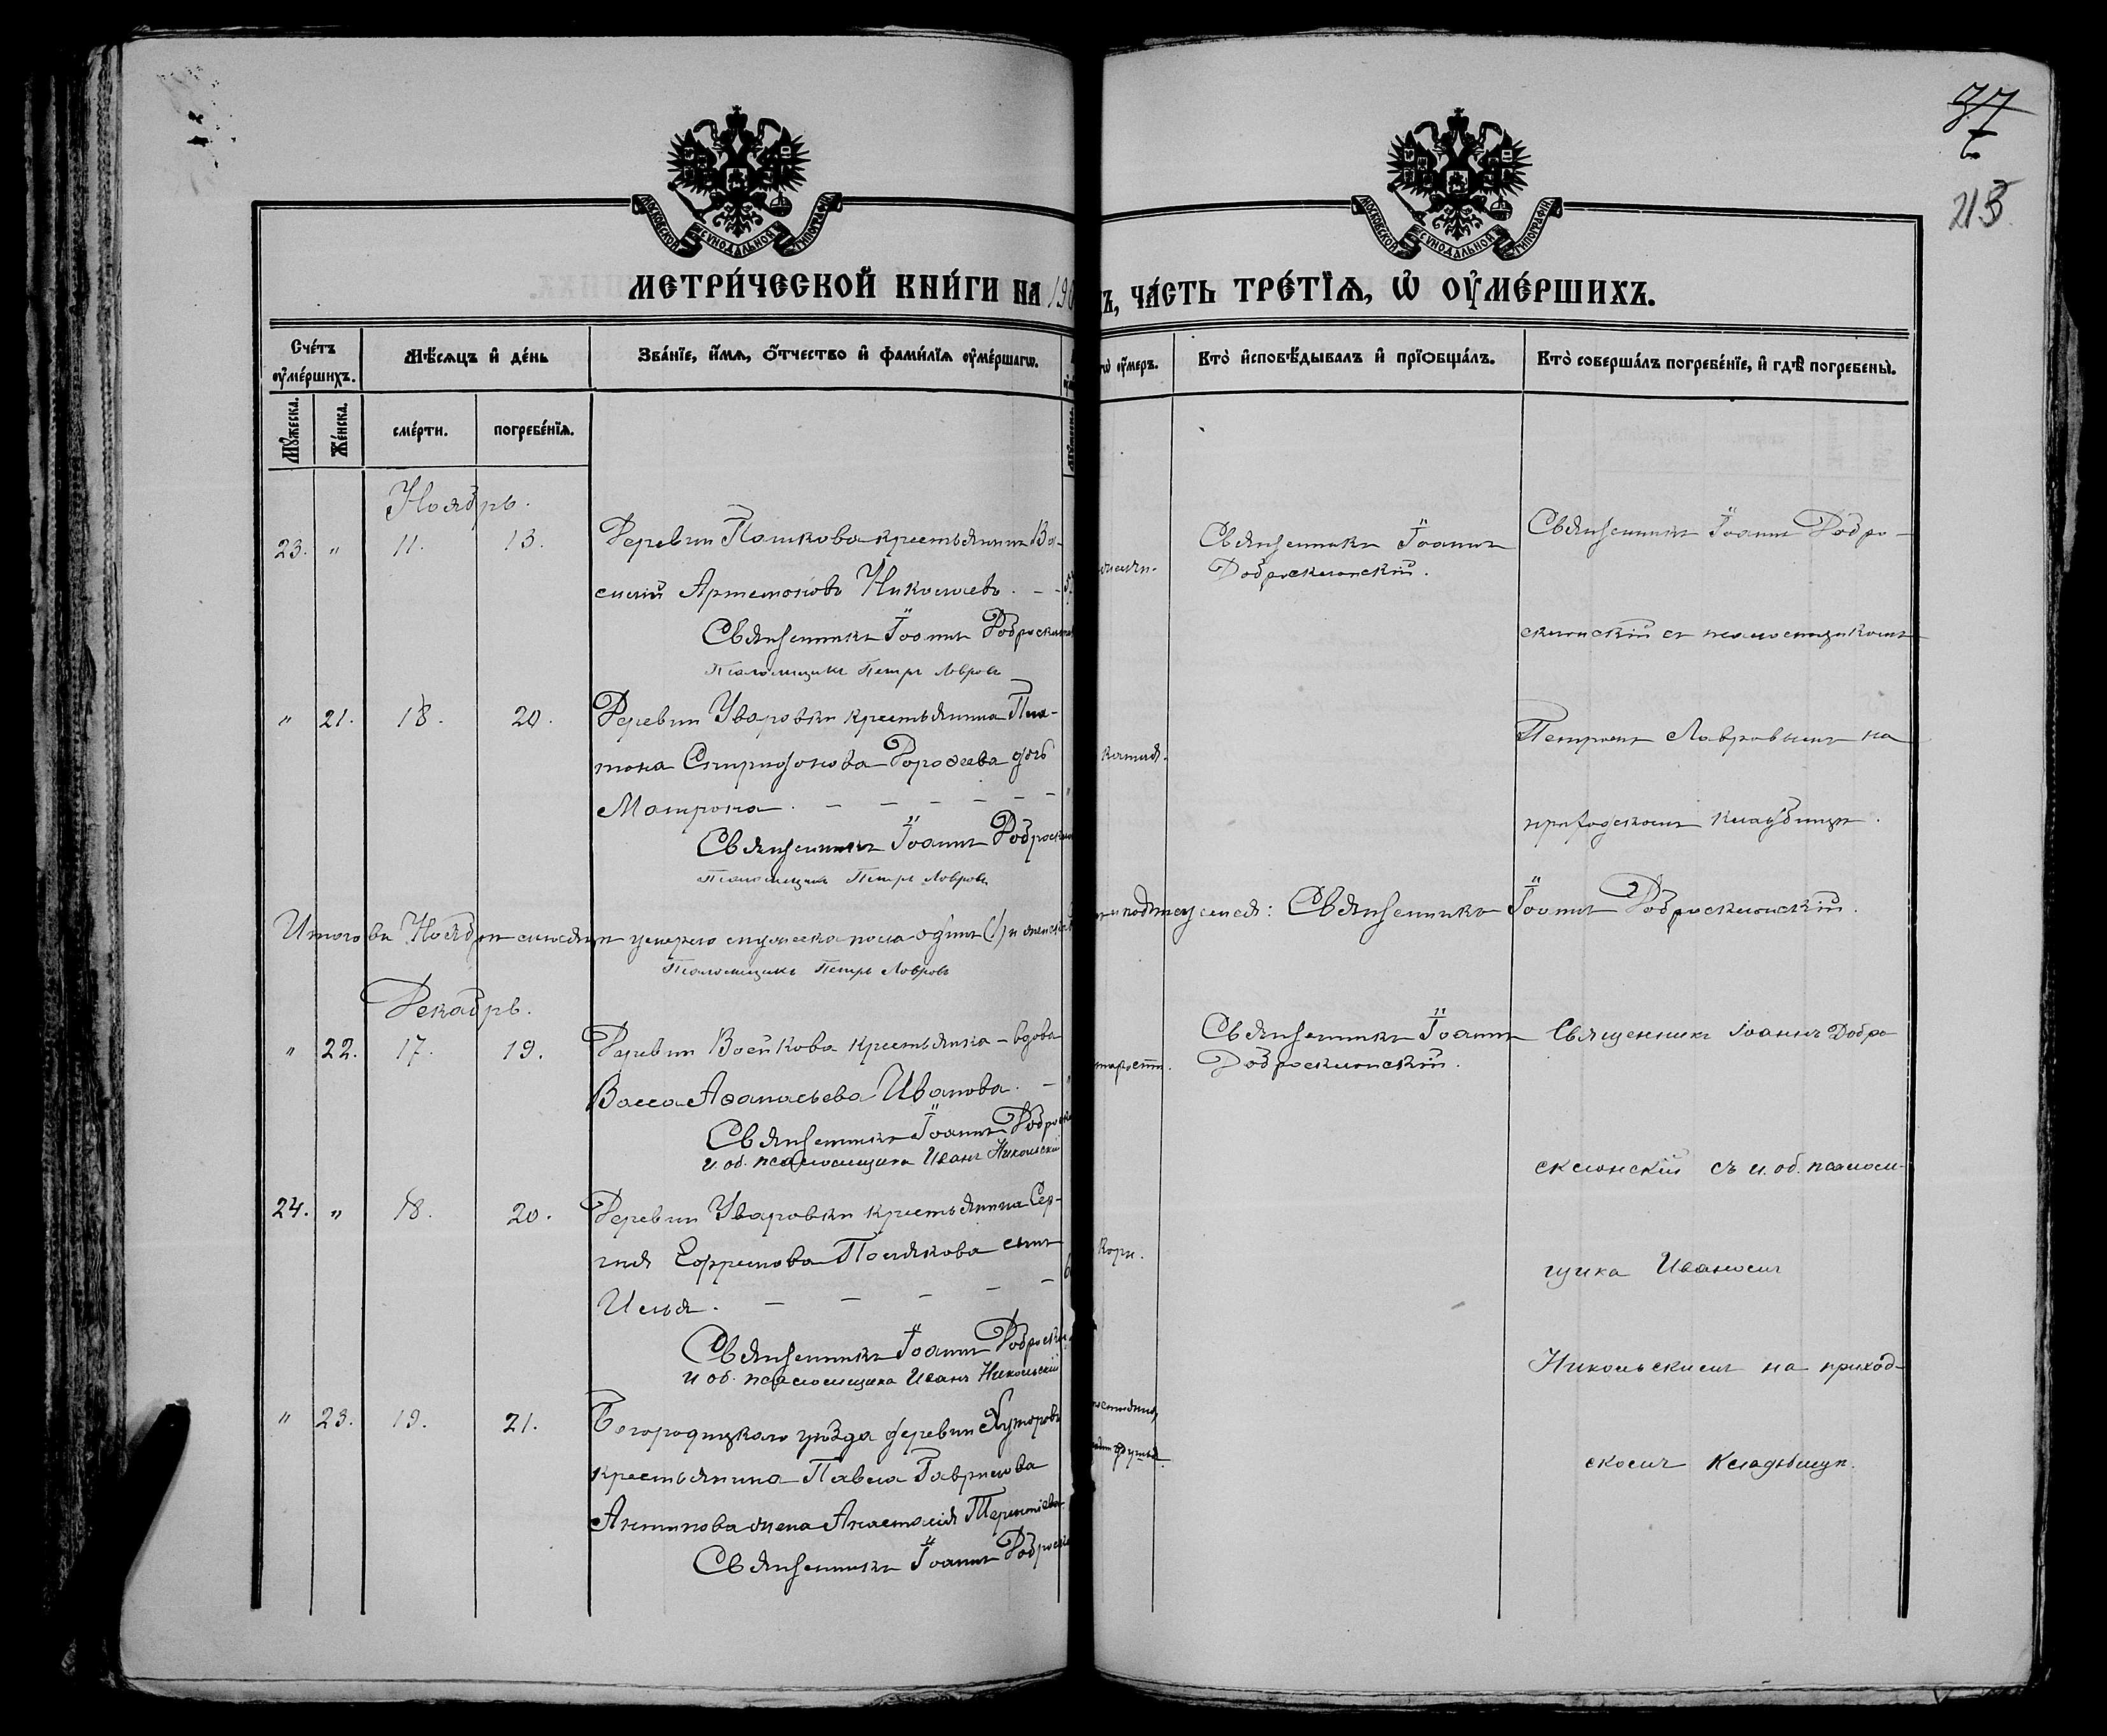 37
7
213.
МОСКОВСКОЙ СѴНОДАЛЬНОЙ ТИПОГРАФІИ
МОСКОВСКОЙ СѴНОДАЛЬНОЙ ТИПОГРАФІИ
МЕТРИ́ЧЕСКОЙ КНИ́ГИ НА 190
Ъ, ЧА́СТЬ ТРЕ́ТІѦ, Ѡ ОУ҆МЕ́РШИХЪ.
Сче́тъ оу҆ме́ршихъ.
Мѣ́сѧцъ и҆ де́нь
Зва́нїе, и҆́мѧ, ѻ҆́тчество и҆ фами́лїѧ оу҆ме́ршагѡ.
оу҆́меръ.
Кто̀ и҆сповѣ́дывалъ и҆ прїѡбща́лъ.
Кто̀ соверша́лъ погребе́нїе, и҆ гдѣ̀ погребены̀.
Му́жеска.
Же́нска.
сме́рти.
погребе́нїѧ.
Ноябрь.
23. " 11. 13. Деревни Пашкова крестьянинъ Ва-
силій Артемоновъ Николаевъ. - -
Священникъ Іоаннъ Доброскло
Псаломщикъ Петръ Лавровъ
Священникъ Іоаннъ
Доброклонскій.
Священникъ Іоаннъ Добро-
склонскій съ псаломщикомъ
" 21. 18. 20. Деревни Уваровки крестьянина Пла-
тона Спиридонова Дорофеева дочь
Матрона. - - - - - -
Священникъ Іоаннъ Доброскло
Псаломщикъ Петръ Лавровъ
кашля.
Петромъ Лавровымъ на
приходскомъ кладбищѣ.
Итого въ Ноябрѣ мѣсяцѣ умерло мужеска пола одинъ (1) и женск
Священникъ Іоаннъ Доброcклонскій.
Псаломщикъ Петръ Лавровъ
Декабрь.
" 22. 17. 19. Деревни Воейкова крестьянка-вдова
Васса Аѳанасьева Иванова. -
Священникъ Іоаннъ Добро
и. об. псаломщика Иванъ Никольскій
старости.
Священникъ Іоаннъ
Добросклонскій.
Священникъ Іоаннъ Добро
склонскій съ и. об. псалом-
24. " 18. 20. Деревни Уваровки крестьянина Сер-
гія Ефремова Полякова сынъ
Илья. - - - -
Священникъ Іоаннъ Доброскл
и об. псаломщика Иванъ Никольскій
кори.
щика Иваномъ
Никольскимъ на приход-
" 23. 19. 21. Богородицкаго уѣзда деревни Хуторовъ
крестьянина Павла Гаврилова
Антипова жена Анастасія Терентіева
Священникъ Іоаннъ Доброскл
скомъ Кладбищѣ.